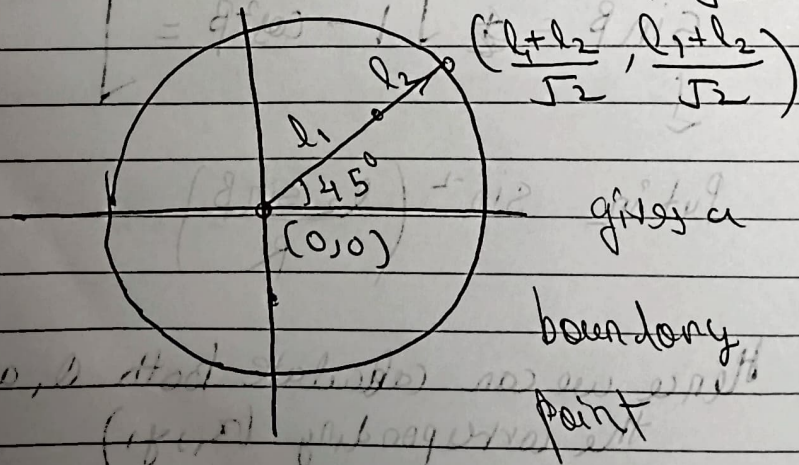 (l₁+l₂/√2, l₁+l₂/√2)
l₂
l₁
45°
(0,0)
gives a
boundary
point